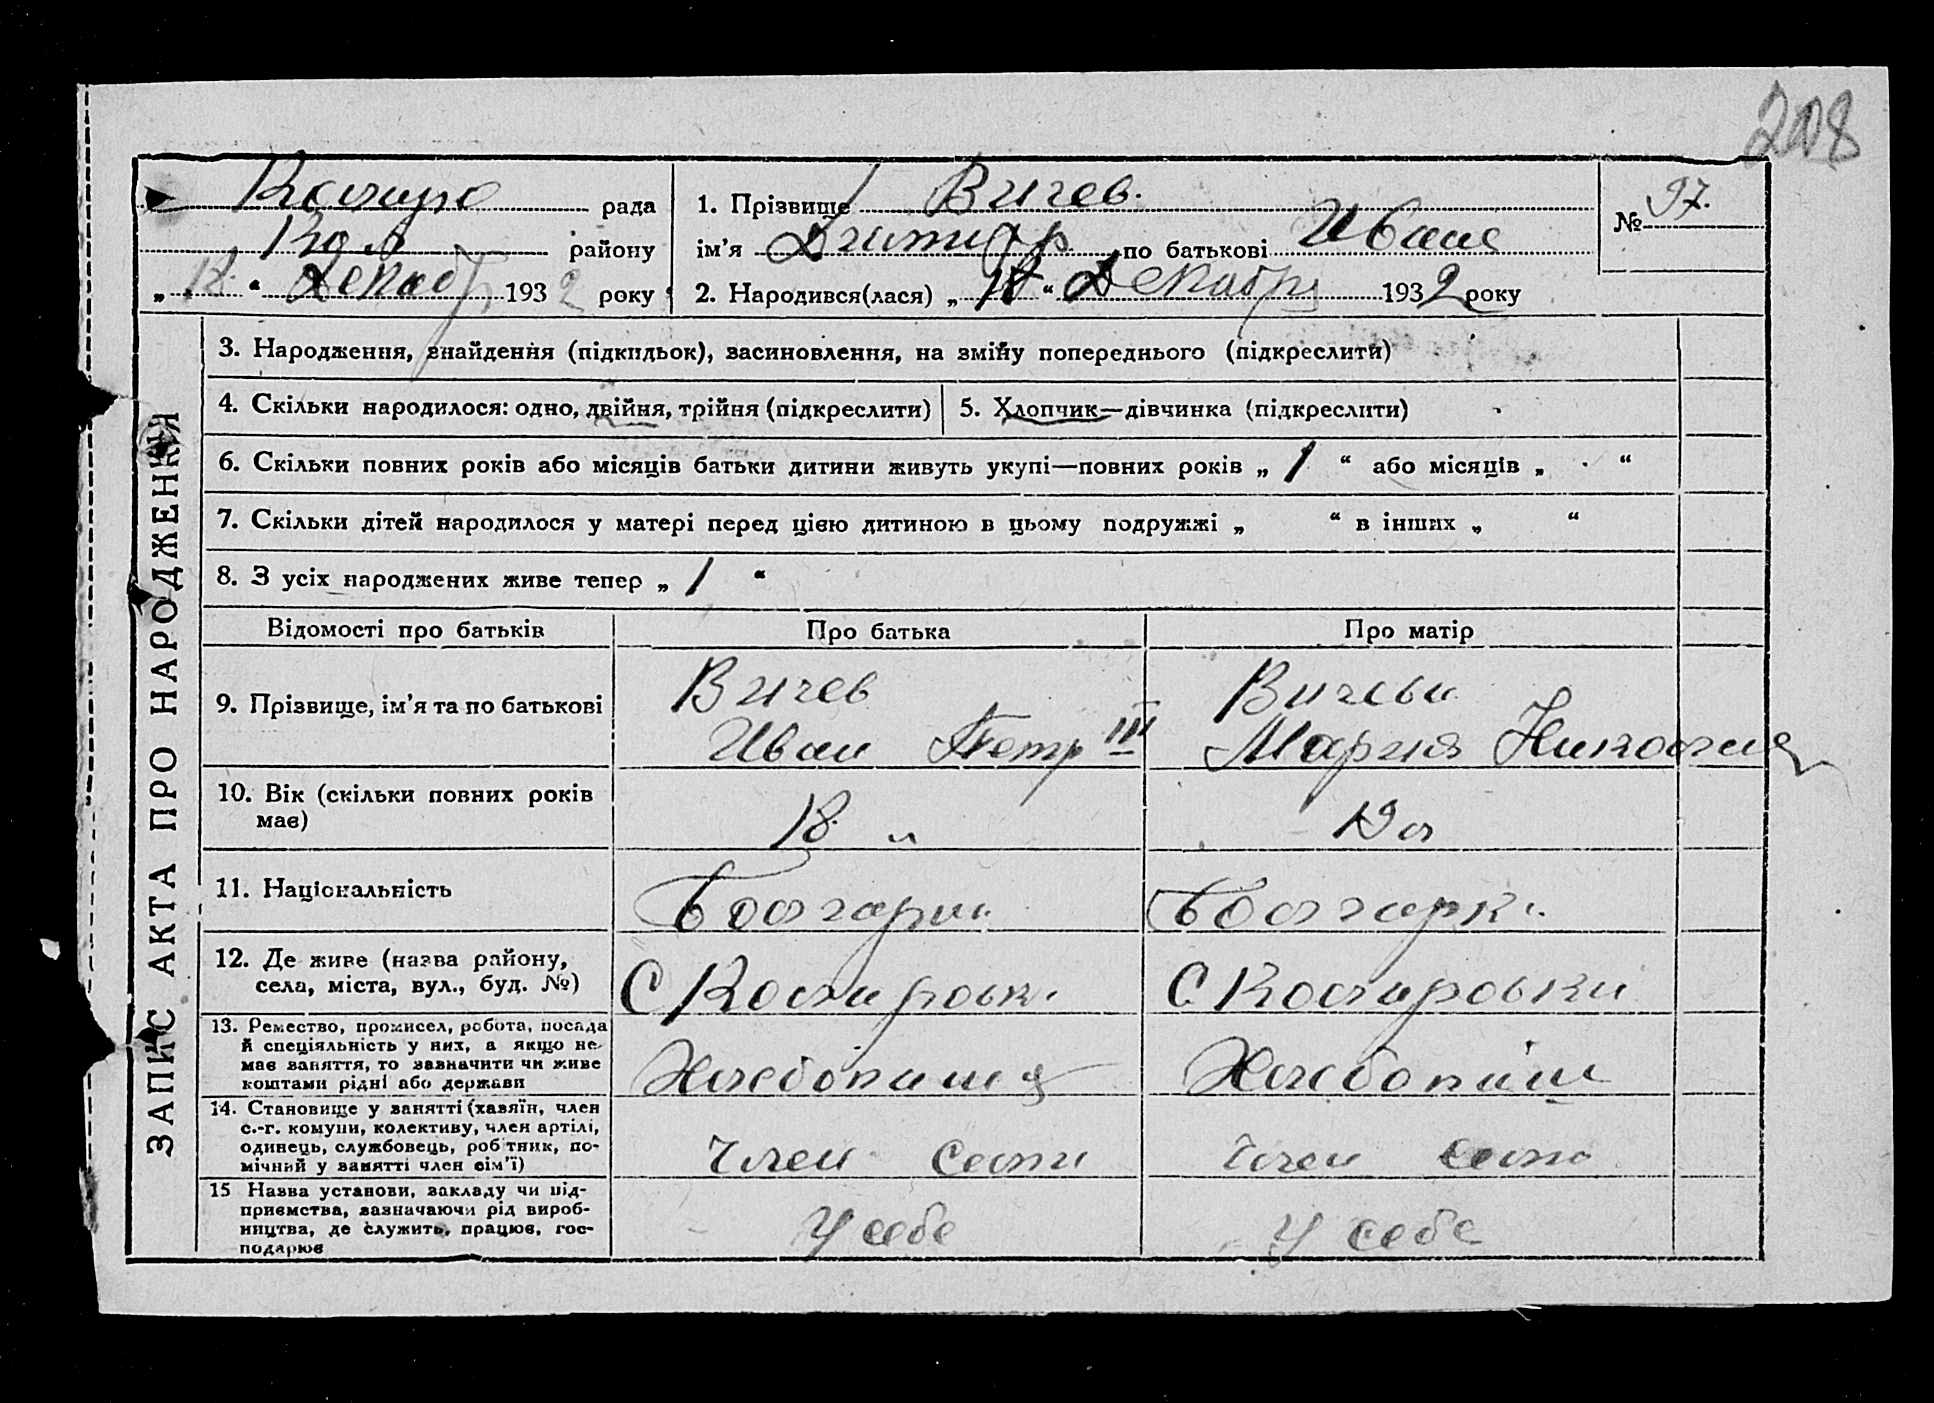 208
рада
району
„ 18 “ Декабр 1932 року
1. Прізвище Вичев
ім’я Димитр по батькові Ивана
2. Народився(лася) „ “ Декабр 1932 року
№ 97.
ЗАПИС АКТА ПРО НАРОДЖЕННЯ
3. Народження, знайдення (підкидьок), засиновлення, на зміну попереднього (підкреслити)
4. Скільки народилося: одно, двійня, трійня (підкреслити)
5. Хлопчик—дівчинка (підкреслити)
6. Скільки повних років або місяців батьки дитини живуть укупі—повних років „ 1 “ або місяців „ “
7. Скільки дітей народилося у матері перед цією дитиною в цьому подружжі „ “ в інших „ “
8. З усіх народжених живе тепер „ 1 “
Відомості про батьків
Про батька
Про матір
9. Прізвище, ім’я та по батькові
Вичев
Иван Петр III
Вичева
Мария
10. Вік (скільки повних років
має)
18 л
19 л
11. Національність
Болгарин
Болгарка
12. Де живе (назва району,
села, міста, вул., буд. №)
С
С
13. Ремество, промисел, робота, посада
й спеціяльність у них, а якщо не-
має заняття, то зазначити чи живе
коштами рідні або держави
Хлебопашц
Хлебопаш
14. Становище у занятті (хазяїн, член
с.-г. комуни, колективу, член артілі,
одинець, службовець, робітник, по-
мічний у занятті член сім’ї)
Член семи
Член семи
15 Назва установи, закладу чи під-
приємства, зазначаючи рід вироб-
ництва, де служить, працює, гос-
подарює
У себе
У себе